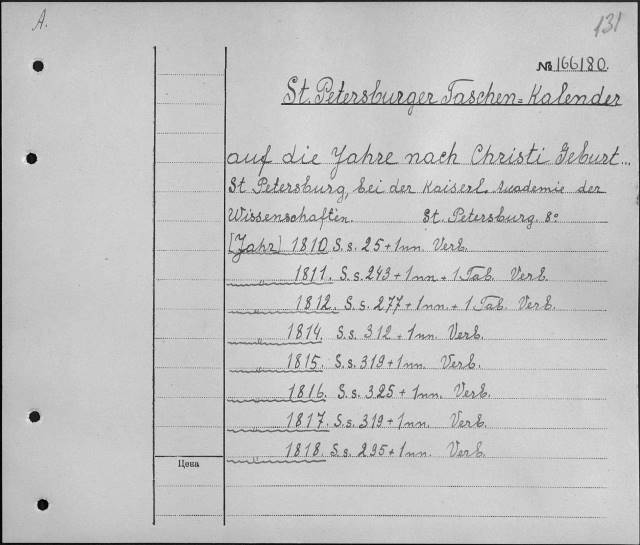 A.
131
№ 166180.
St. Petersburger Taschen=Kalender
auf die Jahre nach Christi Geburt...
St Petersburg, bei der Kaiserl. Academie der
Wissenschaften. St. Petersburg. 8º
[Jahr] 1810 S.s. 25+1nn. Verb.
„ 1811. S.s. 243+1nn+1 Tab. Verb.
„ 1812. S.s. 277+1nn.+1 Tab. Verb.
„ 1814. S.s. 312+1nn. Verb.
„ 1815. S.s. 319+1nn. Verb.
„ 1816. S.s. 325+1nn. Verb.
„ 1817. S.s. 319+1nn. Verb.
„ 1818. S.s. 295+1nn. Verb.
Цена